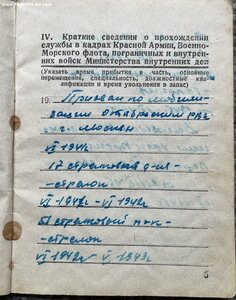 IV. Краткие сведения о прохождении
службы в кадрах Красной Армии, Военно-
Морского флота, пограничных и внутрен-
них войск Министерства внутренних дел
(Указать время прибытия в часть, основные
перемещения, специальность, должностные ква-
лификации и время увольнения в запас)
19. Призван по мобили-
зации Октябрьский РВК
г. Москвы
VII 1941г
17 стрелковая д-ия-
-стрелок
VI 1942г
51 стрелковый полк-
-стрелок
VI 1942г V 1943г
5